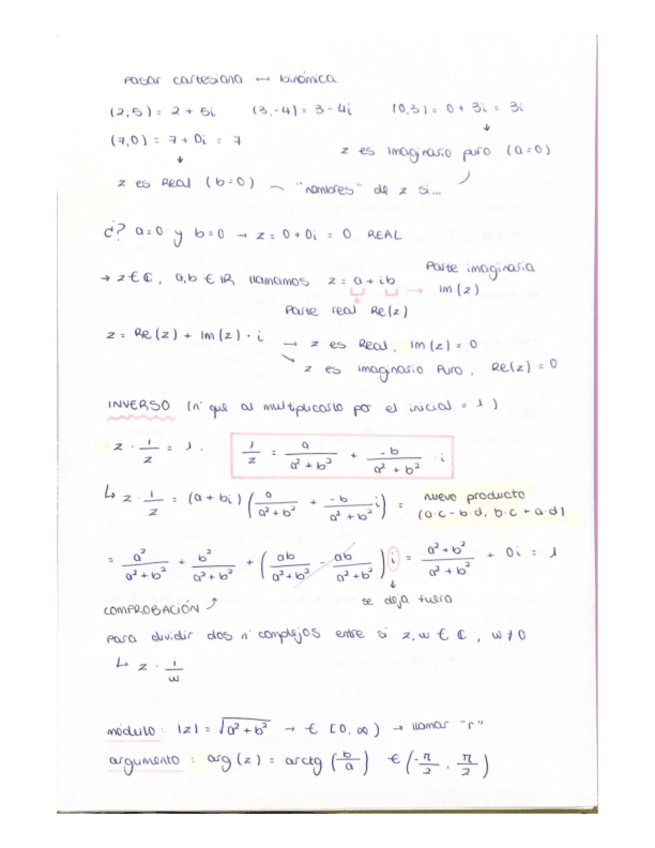 Pasar cartesiana ↔ binómica
(2,5) = 2 + 5i (3,-4) = 3 - 4i (0,3) = 0 + 3i = 3i
(7,0) = 7 + 0i = 7
z es Imaginario puro (a=0)
z es Real (b=0) "nombres" de z si...
¿? a=0 y b=0 → z = 0 + 0i = 0 REAL
→ z ∈ ℂ, a,b ∈ ℝ llamamos z = a + ib
Parte imaginaria
Im (z)
Parte real Re(z)
z = Re(z) + Im(z) · i → z es Real, Im(z) = 0
z es Imaginario Puro, Re(z) = 0
INVERSO (nº que al multiplicarlo por el inicial = 1)
z · 1/z = 1. 1/z = a/(a² + b²) + -b/(a² + b²) · i
↳ z · 1/z = (a + bi) (a/(a² + b²) + -b/(a² + b²) i) = nuevo producto
(a·c - b·d, b·c + a·d)
= a²/(a² + b²) + b²/(a² + b²) + (ab/(a² + b²) - ab/(a² + b²)) i = (a² + b²)/(a² + b²) + 0i = 1
se deja fuera
COMPROBACIÓN
Para dividir dos nº complejos entre sí z, w ∈ ℂ, w ≠ 0
↳ z · 1/w
módulo: |z| = √(a² + b²) → ∈ [0, ∞) → llamar "r"
argumento: arg (z) = arctg (b/a) ∈ (-π/2, π/2)